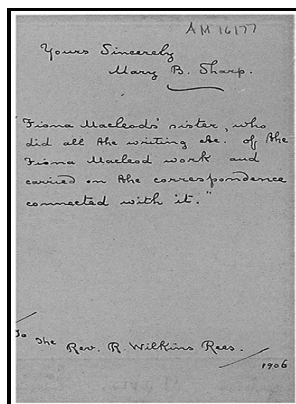 AM 16177
Yours Sincerely
Mary B. Sharp.
"Fiona Macleods' sister, who
did all the writing etc. of the
Fiona Macleod work and
carried on the correspondence
connected with it."
To the
Rev. R. Wilkins Rees.
1906